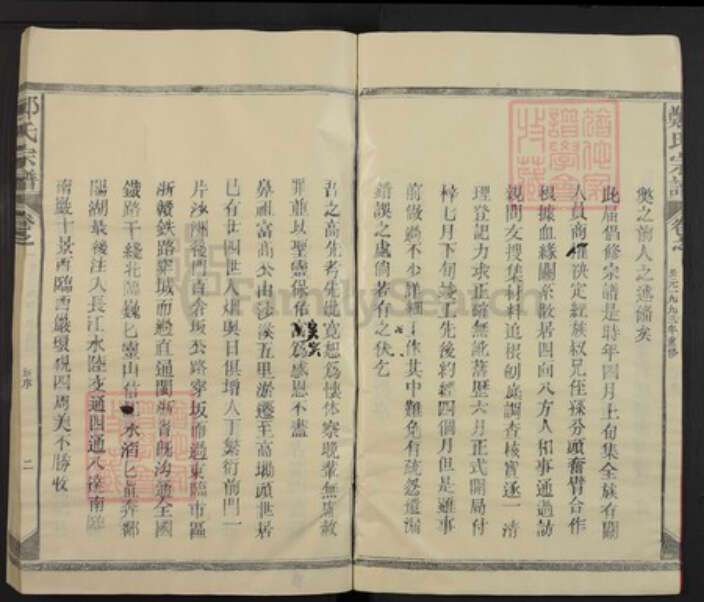 奧之前人之述備矣
此屆倡修宗譜是時年四月上旬集全族有關
人員商權決定經族叔兄侄孫分頭奮臂合作
根據血緣關系散居四向八方人和事通過訪
親問友搜集材料追根刨底調查核實逐一清
理登記力求正確無訛落歷六月正式開局付
梓七月下旬竣工先後約經四個月但是雖事
前做過不少詳細工作其中難免有疏忽遺漏
錯誤之處倘若有之伏乞
書之高先考先妣寬恕為懷体察晚輩無虞敢
罪並以聖靈保佑 為感恩不盡
鼻祖富高公由沙溪五里淤遷至高坳頭世居
已有廿四世人煙與日俱增人丁繁衍前門一
片沙洲後門貢舍坂公路穿坂而過東臨市區
浙贛鉄路穿城而過直通閩浙省既溝通全國
鐵路干綫北隔巍巍靈山信 水滔匕直奔鄱
陽湖最後注入長江水陸交通四通八達南臨
南巖十景西臨西巖環視四周美不勝收
鄭氏宗譜
卷之
序
二
FamilySearch